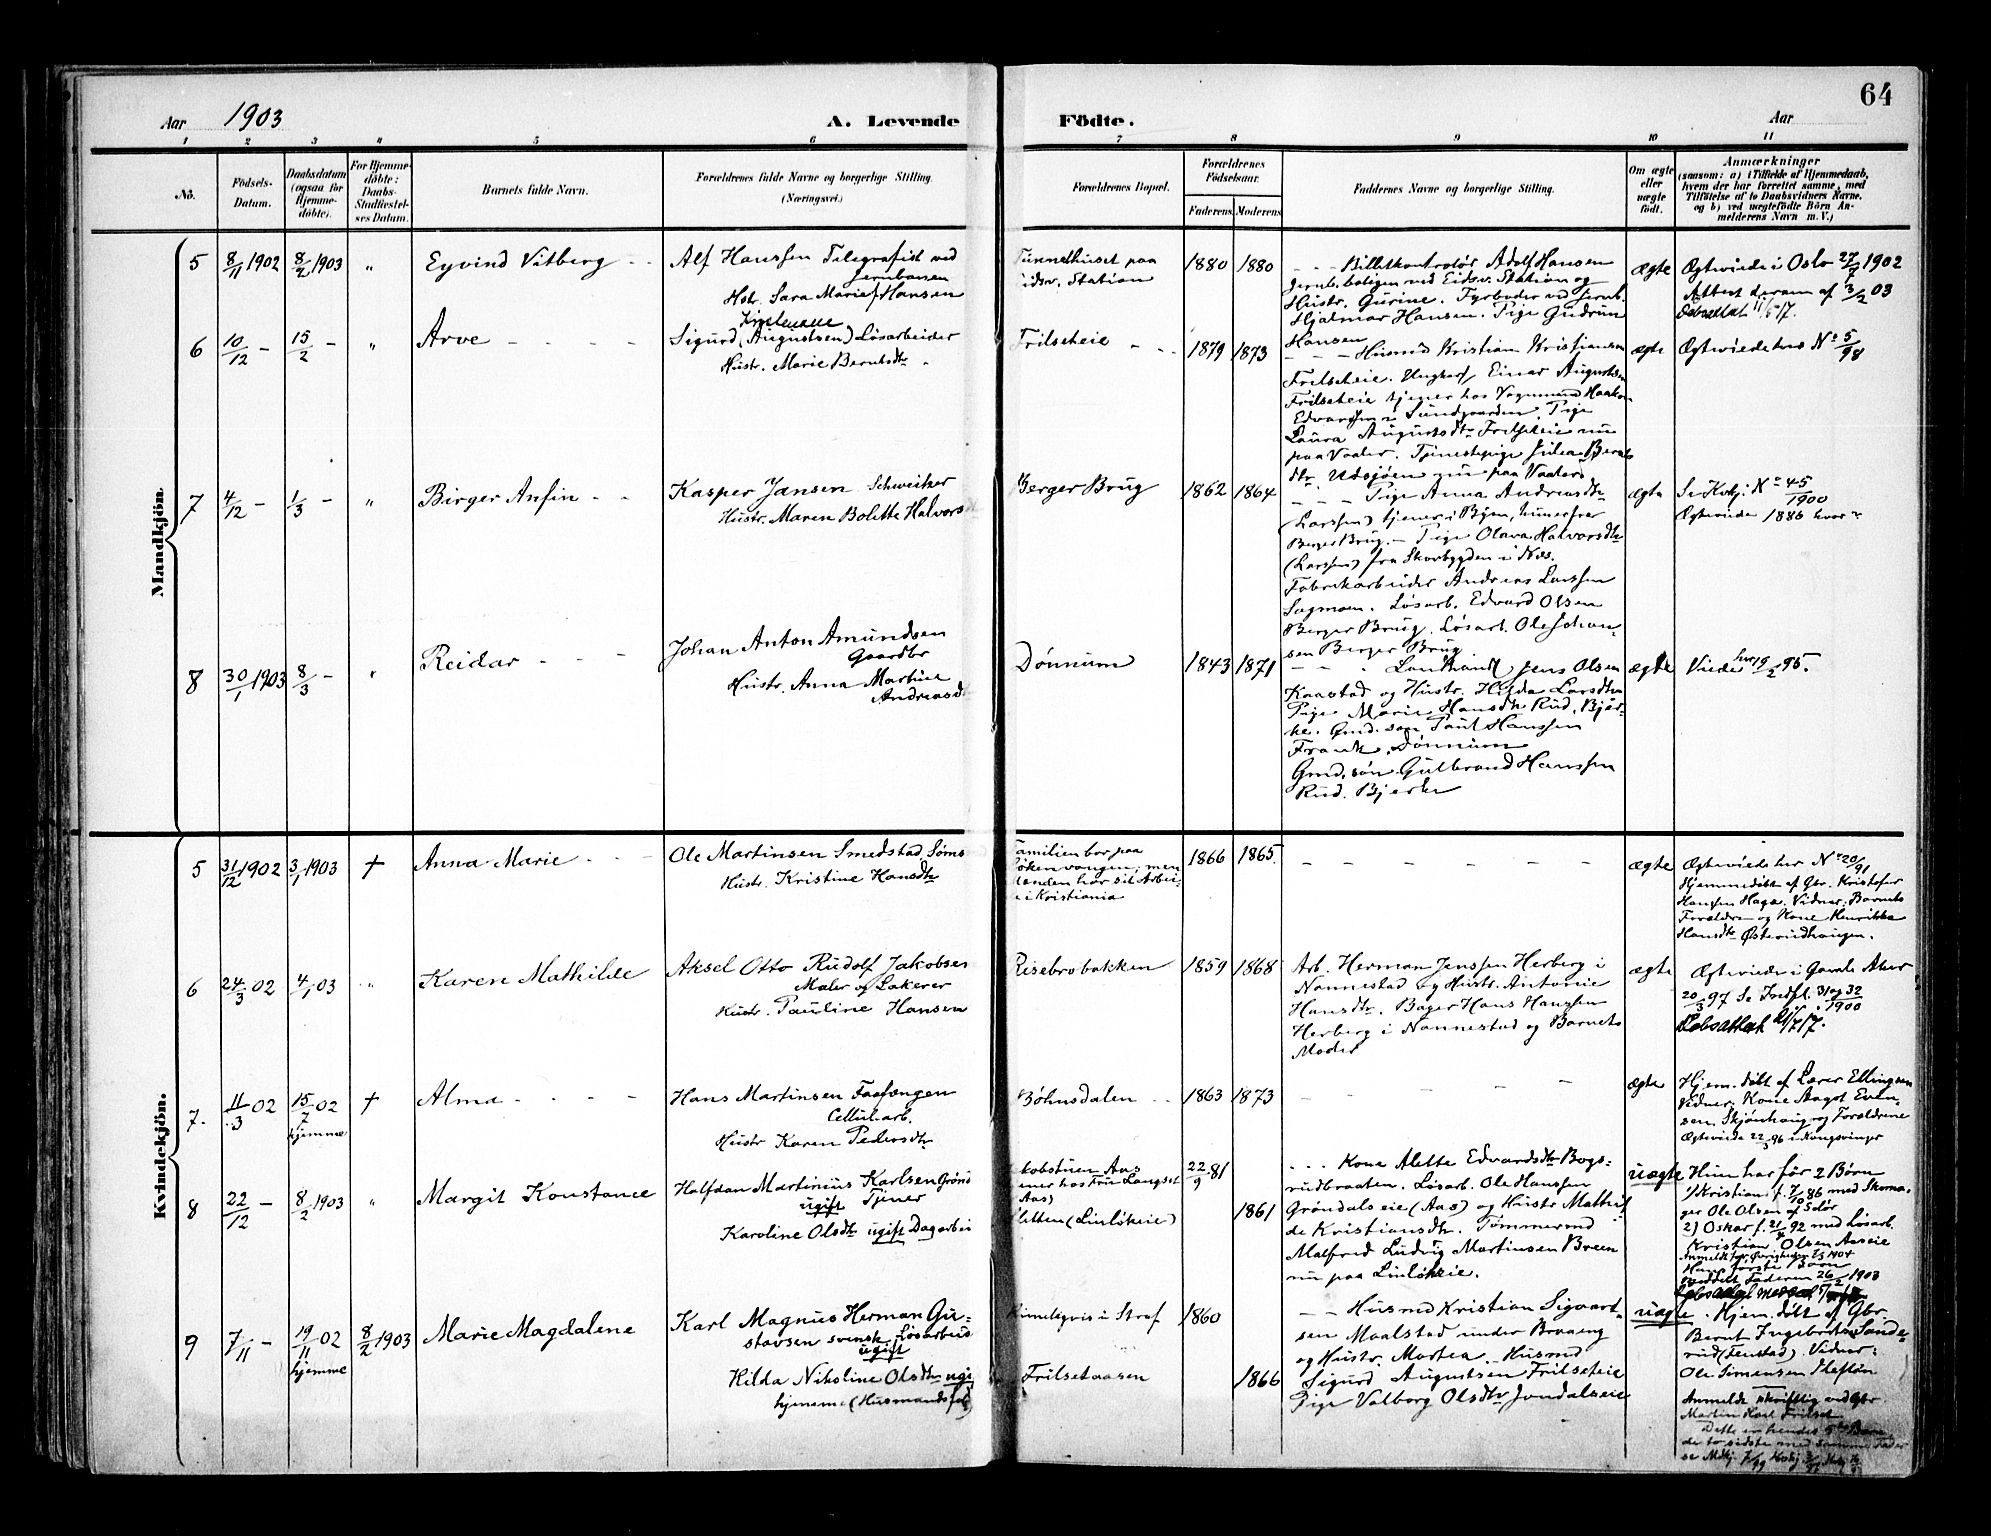 64
Aar 1903
A. Levende Födte.
Aar
1 2 3 4 5 6 7 8 9 10 11
No.
Födsels-
Datum.
Daabsdatum
(ogsaa for
Hjemme-
döbte).
For Hjemme-
döbte:
Daabs-
Stadfæstel-
ses Datum.
Barnets fulde Navn.
Forældrenes fulde Navne og borgerlige Stilling.
(Næringsvei.)
Forældrenes Bopæl.
Forældrenes
Födselsaar.
Faderens Moderens
Faddernes Navne og borgerlige Stilling.
Om ægte
eller
uægte
født.
Anmærkninger
(saasom: a) i Tilfælde af Hjemmedaab,
hvem der har forrettet samme, med
Tilföielse af to Daabsvidners Navne,
og b) ved uægtefödte Börn An-
melderens Navn m. V.)
Mandkjön.
5 8/11 1902 8/2 1903 " Eyvind Vitberg
Alf Hanssen Telegrafist ved
Jernbanen
Hstr. Sara Marie Hansen
Tunnelhuset paa
Eidsv. Station
1880 1880
Billetkontrolør Adolf Hansen
Jernb.boligen ved Eidsv. Station og
Hustr. Gurine. Fyrbøder ved Jernb.
Hjalmar Hansen. Pige Gudrun
Hansen
ægte
Ægteviede i Oslo 27/7 1902
Attest derom af 3/2 03
6 10/12 – 15/2 – " Arve
Sigurd (Augustsen) Løsarbeider
Hustr. Marie Berntsdtr
Frilseteie
1879 1873
Husmd Kristian Kristiansen
Frilseteie. Ungkarl Einar Augustsen
Frilseteie tjener hos Vognmand Haakon
Edvardsen i Sundgaarden. Pige
Laura Augustsdtr Frilseteie nu
paa Vaaler. Tjenestepige Julia Bernts
dtr. Udsjøen nu paa Vaaler
ægte
Ægteviede her No 5/98
7 4/12 – 1/3 – " Birger Anfin
Kasper Jansen Schweitser
Hustr. Maren Bolette Halvorsdtr
Berger Brug
1862 1864
Pige Anna Andreasdtr
(Larssen) tjener i Byen, hunesfra
Berger Brug. – Pige Olava Halvorsdtr
(Larssen) fra Skovbygden i Næs.
Fabrikarbeider Andreas Larssen
Sagmoen. Løsarb. Edvard Olsen
Berger Brug. Løsarb. Ole Johan-
sen Berger Brug
ægte
Se Kvkj: No 45/1900
Ægteviede 1886 hvor?
8 30/1 1903 8/3 – " Reidar
Johan Anton Amundsen
Gaardbr
Hustr. Anna Martine
Andreasdtr
Dønnum
1843 1871
Landhandl Jens Olsen
Kaastad og Hustr. Hilda Larsdtr
Pige Marie Hansdtr Rud. Bjer-
ke. Gmd. søn Paul Hanssen
Frank, Dønnum
Gmd. søn Gulbrand Hanssen
Rud. Bjerke
ægte
Viede her 19/2 95.
Kvindekjön.
5 31/12 1902 3/1 1903 † Anna Marie
Ole Martinsen Smedstad, Sømd
Hustr. Kristine Hansdtr
Familien bor paa
Løkenvangen; men
Manden har sit Arbei-
de i Kristiania
1866 1865
ægte
Ægteviede her No 20/91
Hjemmedøbt af Gbr. Kristofer
Hanssen Haga. Vidner: Barnets
Forældre og Kone Henrikka
Hansdtr Østerudhaugen.
6 24/3 02 4/1 03 " Karen Mathilde
Aksel Otto Rudolf Jakobsen
Maler og Lakerer
Hustr. Pauline Hansen
Risebrobakken
1859 1868
Arb. Herman Jenssen Herberg i
Nannestad og Hustr. Antonie
Hansdtr. Bager Hans Hanssen
Herberg i Nannestad og Barnets
Moder
ægte
Ægteviede i Gamle Aker
20/3 97 Se Indfl. 31 og 32/1900
7. 11/3 02 15/7 02 hjemme † Alma
Hans Martinsen Faafængen
Cellul.arb.
Hustr Karen Pedersdtr
Bøhnsdalen
1863 1873
ægte
Hjem. døbt af Lærer Ellingsen
Vidner: Kone Aagot Even-
sen. Skjønhaug og Forældrene
Ægteviede 22/3 96 i Kongsvinger
8 22/12 – 8/2 1903 " Margit Konstance
Halfdan Martinius Karlsen Grønd
ugift Tjener
Karoline Olsdtr ugift Dagarbei
Jakobstuen Aas
tjener hos Fru Langset
Aas)
Sletten (Linløkeie)
22/9 81
1861
Kone Alette Edvardsdtr Bogs-
rudbraaten. Løsarb. Ole Hanssen
Grøndalseie (Aas) og Hustr Mathil
de Kristiansdtr. Tømmermd
Malfred Ludvig Martinsen Breen
nu paa Linløkeie.
uægte
Hun har før 2 Børn
1) Kristian f. 7/10 86 med Skoma-
ger Ole Olsen af Solør
2) Oskar f. 21/4 92 med Løsarb.
Kristian Olsen Aaseie
Hans første Barn
meddelt Faderen 26/2 1903
9 7/11 – 19/11 02 hjemme 8/2 1903 Marie Magdalene
Karl Magnus Herman Gu-
stavsen svensk Løsarbeid
ugift
Hilda Nikoline Olsdtr ugi
hjemme (Husmandsfolk)
Rimeligvis i Straf
Frilsetaasen
1860
1866
Husmd Kristian Sigvart-
sen Maalstad under Braaeng
og Hustr. Martea. Husmd
Sigurd Augustsen Frilseteie
Pige Valborg Olsdtr Jondalseie
uægte
Hjem. døbt af Gbr.
Bernt Ingebretsen Sande-
rud (Fenstad). Vidner:
Ole Simensen Slefton
Anmeldt skriftlig ved Gbr
Martin Karl Frilset
Dette er hendes Barn
de to sidste med samme Fader